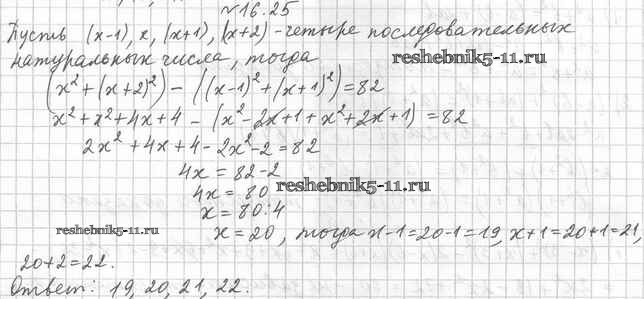 №16.25
Пусть (x-1), x, (x+1), (x+2) - четыре последовательных
натуральных числа, тогда
reshebnik5-11.ru
(x²+(x+2)²) - ((x-1)²+(x+1)²) = 82
x²+x²+4x+4 - (x²-2x+1+x²+2x+1) = 82
2x²+4x+4-2x²-2=82
4x = 82-2
4x = 80
reshebnik5-11.ru
x = 80:4
reshebnik5-11.ru
x = 20, тогда x-1=20-1=19, x+1=20+1=21,
20+2=22.
Ответ: 19, 20, 21, 22.